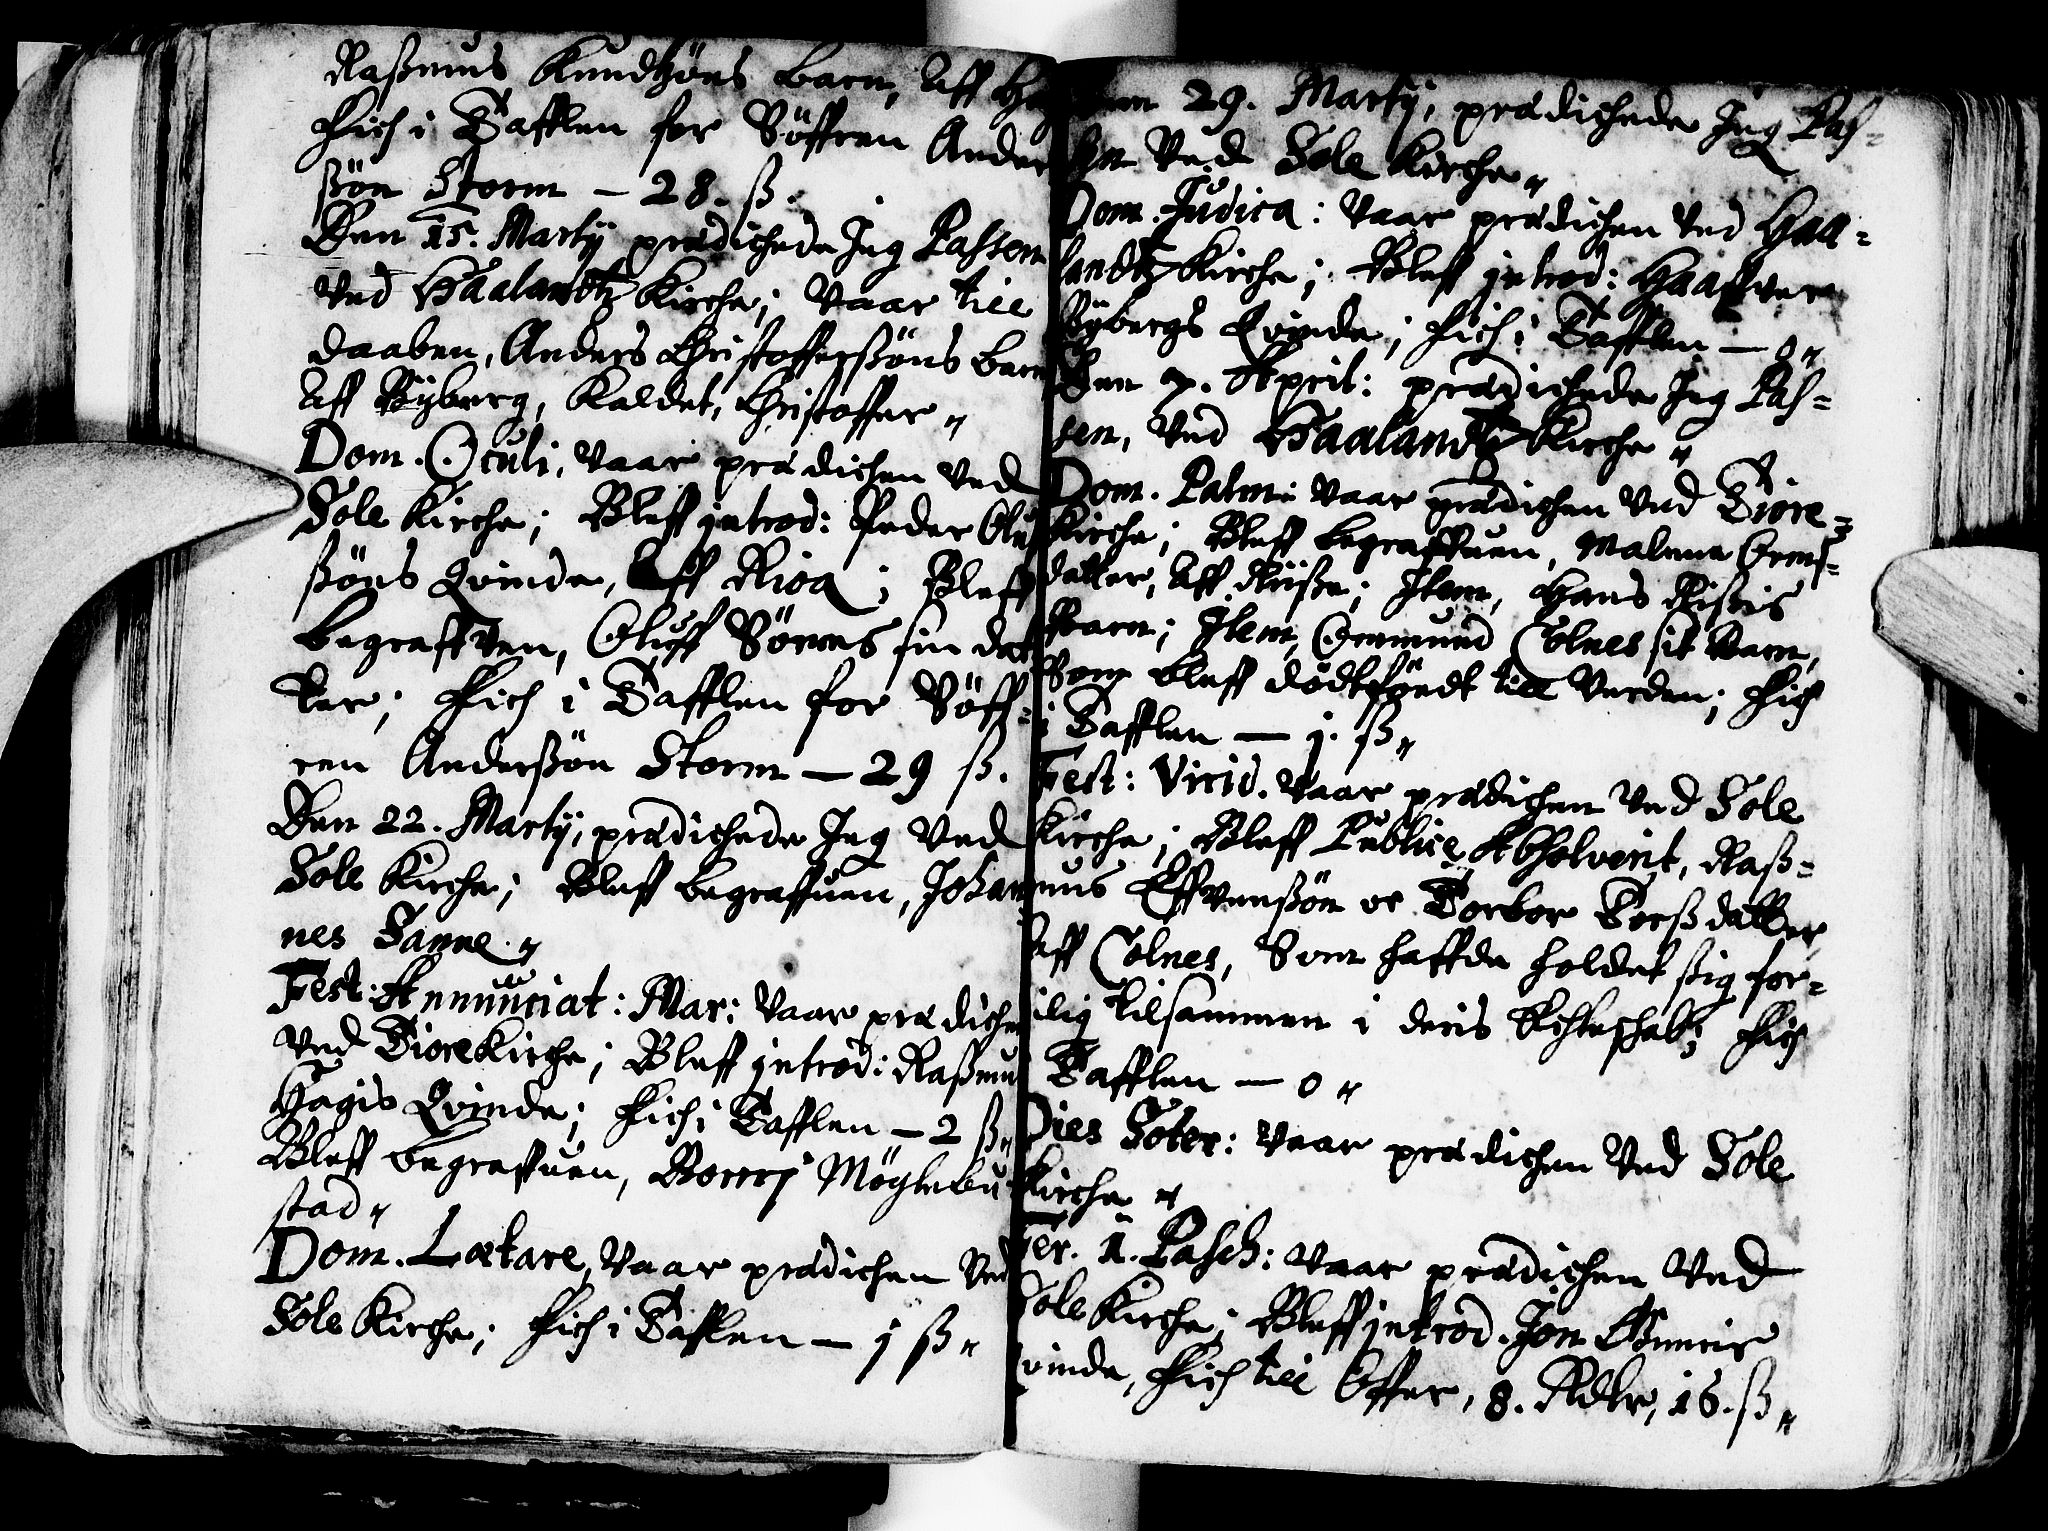 Raßmus Knudtzöns barn, aff Hag
Fich i Tafflen for Söffren Ander
ßön Storm – 28. ß.
Den 15. Martij prædichede Jeg Passon
ved Haalandtz Kirche; Vaar till
daaben, Anders Christofferßöns barn
aff Ryberg, Kaldet, Christoffer"
Dom. Oculi, Vaar prædichen ved
Sole Kirche; Bleff introd: Peder Oluf
ßöns Qvinde, aff Rioa; Bleff
begraffven, Oluff Sömes sin dat
ter; Fich i Tafflen for Söff=
ren Anderßön Storm – 29 ß.
Den 22. Martij, prædichede Jeg ved
Sole Kirche; Bleff begraffuen, Johan
nes Sanne."
Fest: Annunciat: Mar: Vaar prædichen
ved Tiore Kirche; Bleff introd: Raßmus
Hagis Qvinde; Fich i Tafflen – 2 ß"
Bleff begraffuen, Möglebu
stad"
Dom. Lætare, Vaar prædichen ved
Sole Kirche; Fich i Tafflen – j ß"
Den 29. Martij, prædichede Jeg Pas=
sen ved Sole Kirche"
Dom. Judica: Vaar prædichen ved Haa=
landtz Kirche; Bleff introd: Haaffver
Rybergs Qvinde; Fich i Tafflen – 0"
Den 7. April: prædichede Jeg Pas=
sen, ved Haalandtz Kirche"
Dom. Palm: Vaar prædichen ved Tiore=
Kirche; Bleff begraffuen, Malene Orms=
datter, aff Riiße; Item, Hans Rißis
Barn; Item, Ommund Colnes sit barn,
Som bleff dödtfödt till Verden; Fich
i Tafflen – j. ß"
Fest: Virid. Vaar prædichen ved Sole
Kirche; Bleff Publicè Absolverit, Raß=
mus Effvenßön oc Torbor Torßdatter,
aff Colnes, Som haffde holdet sig for=
ilig tilsammen i deris Echteschab; Fich
i Tafflen – 0"
Dies Soter: Vaar prædichen ved Sole
Kirche"
Fer. 1. Pasch: Vaar prædichen ved
Sole Kirche; Bleff introd. Jon Gimris
Qvinde, Fich till Offer, 8. Rdlr, 16. ß"